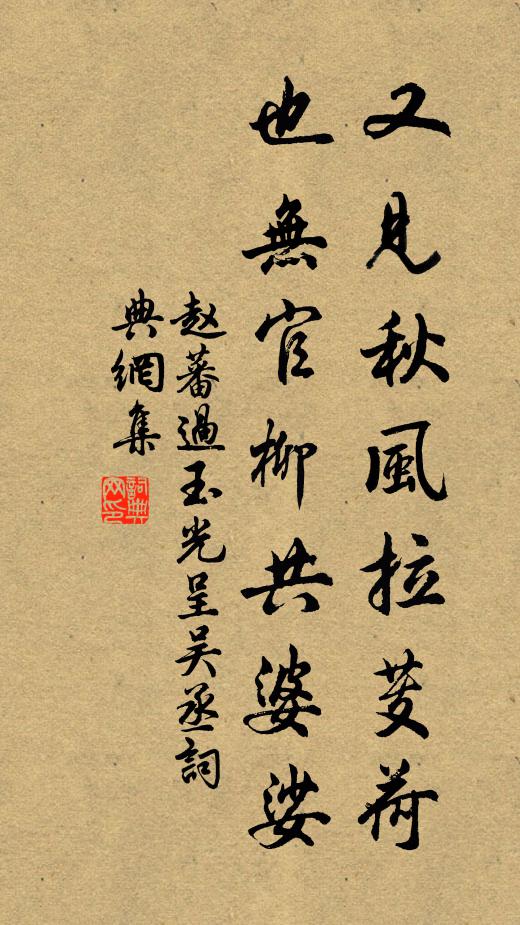 又見秋風拉芰荷
也無官柳共婆娑
赵蕃過玉光呈吴丞詞
典網集
詞典網印